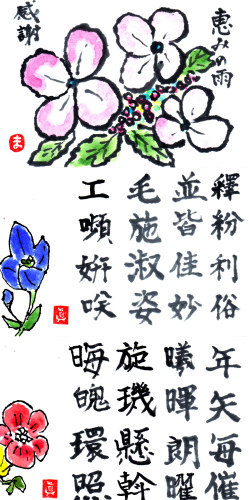 恵みの雨
感謝
ま
釋粉利俗
並皆佳妙
毛施淑姿
工嚬妍咲
眞
年矢毎催
曦暉朗曜
旋璣懸斡
晦魄環照
眞